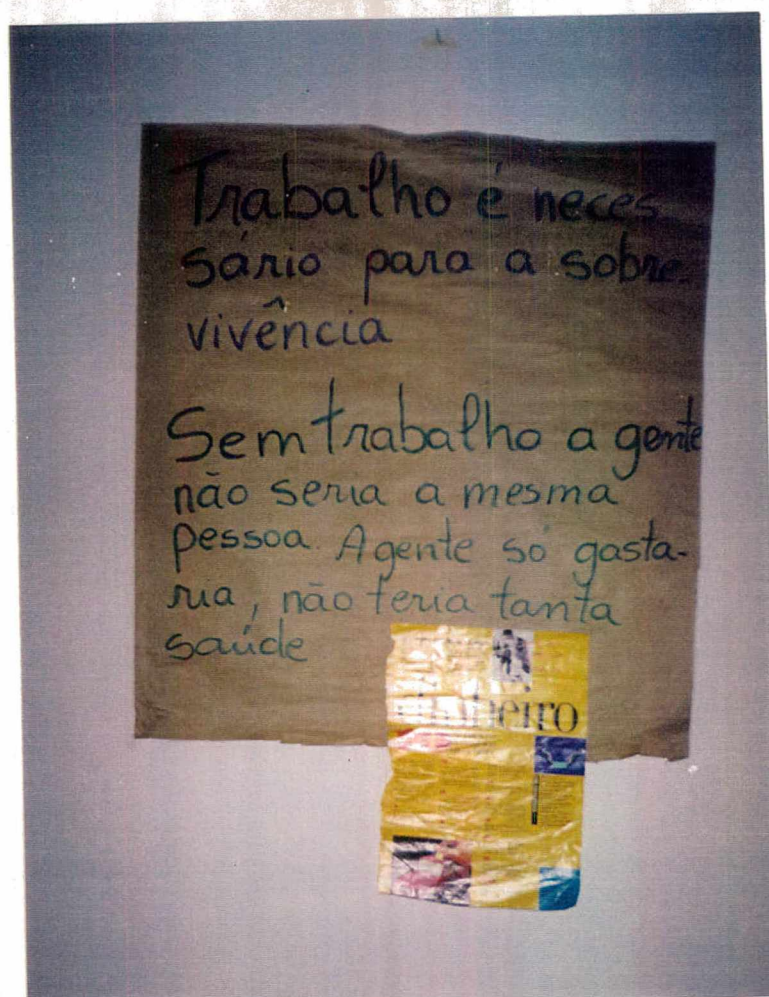 Trabalho é neces
sário para a sobre-
vivência
Sem trabalho a gente
não seria a mesma
pessoa. A gente só gasta-
ria, não teria tanta
saúde
dinheiro